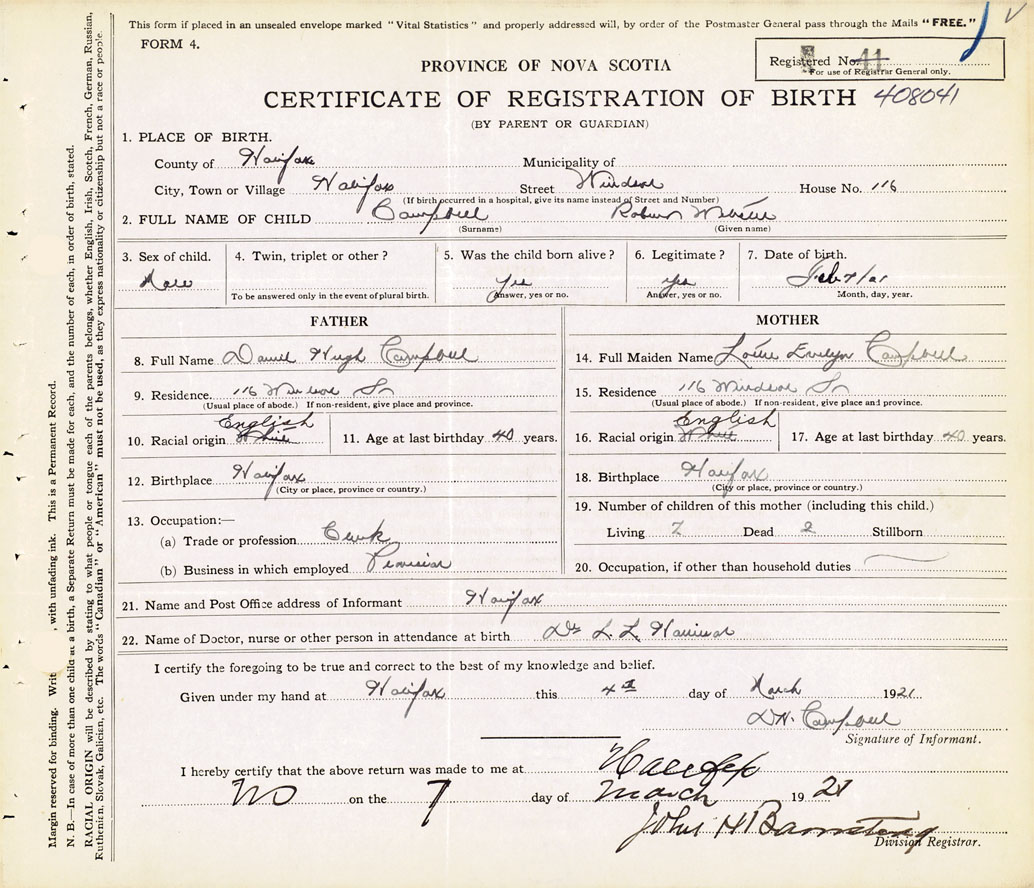 This form if placed in an unsealed envelope marked "Vital Statistics" and properly addressed will, by order of the Postmaster General pass through the Mails "FREE."
FORM 4.
Registered No. 41
For use of Registrar General only.
PROVINCE OF NOVA SCOTIA
CERTIFICATE OF REGISTRATION OF BIRTH 408041
(BY PARENT OR GUARDIAN)
1. PLACE OF BIRTH.
County of Halifax Municipality of
City, Town or Village Halifax Street Windsor House No. 116
(If birth occurred in a hospital, give its name instead of Street and Number)
2. FULL NAME OF CHILD Campbell Robert
(Surname) (Given name)
3. Sex of child. 4. Twin, triplet or other? 5. Was the child born alive? 6. Legitimate? 7. Date of birth.
Male Yes Yes Feb 7/21
To be answered only in the event of plural birth. Answer, yes or no. Answer, yes or no. Month, day, year.
FATHER
8. Full Name Daniel Hugh Campbell
9. Residence. 116 Windsor St
(Usual place of abode.) If non-resident, give place and province.
English
10. Racial origin White 11. Age at last birthday 40 years.
12. Birthplace Halifax
(City or place, province or country.)
13. Occupation:—
(a) Trade or profession Clerk
(b) Business in which employed
MOTHER
14. Full Maiden Name Evelyn Campbell
15. Residence 116 Windsor St
(Usual place of abode.) If non-resident, give place and province.
English
16. Racial origin White 17. Age at last birthday 40 years.
18. Birthplace Halifax
(City or place, province or country.)
19. Number of children of this mother (including this child.)
Living 7 Dead 2 Stillborn
20. Occupation, if other than household duties
21. Name and Post Office address of Informant Halifax
22. Name of Doctor, nurse or other person in attendance at birth Dr L. L. Harrison
I certify the foregoing to be true and correct to the best of my knowledge and belief.
Given under my hand at Halifax this 4th day of March 1921
D.H. Campbell
Signature of Informant.
I hereby certify that the above return was made to me at Halifax
NS on the 7 day of March 19 21
John H Barnstead
Division Registrar.
Margin reserved for binding. Writ , with unfading ink. This is a Permanent Record.
N. B.—In case of more than one child at a birth, a Separate Return must be made for each, and the number of each, in order of birth, stated.
RACIAL ORIGIN will be described by stating to what people or tongue each of the parents belongs, whether English, Irish, Scotch, French, German, Russian,
Ruthenian, Slovak, Galician, etc. The words "Canadian" or "American" must not be used, as they express nationality or citizenship but not a race or people.